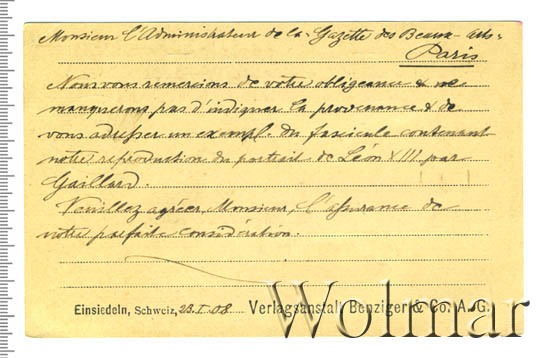 Monsieur l'Administrateur de la Gazette des Beaux-Arts.
Paris
Nous vous remercions de votre obligeance & ne
manquerons pas d'indiquer la provenance & de
vous adresser un exempl. du fascicule contenant
notre reproduction du portrait de Léon XIII par
Gaillard.
Veuillez agréer, Monsieur, l'assurance de
votre parfaite considération.
Einsiedeln, Schweiz, 23.I.08 Verlagsanstalt Benziger & Co. A. G.
Wolmar